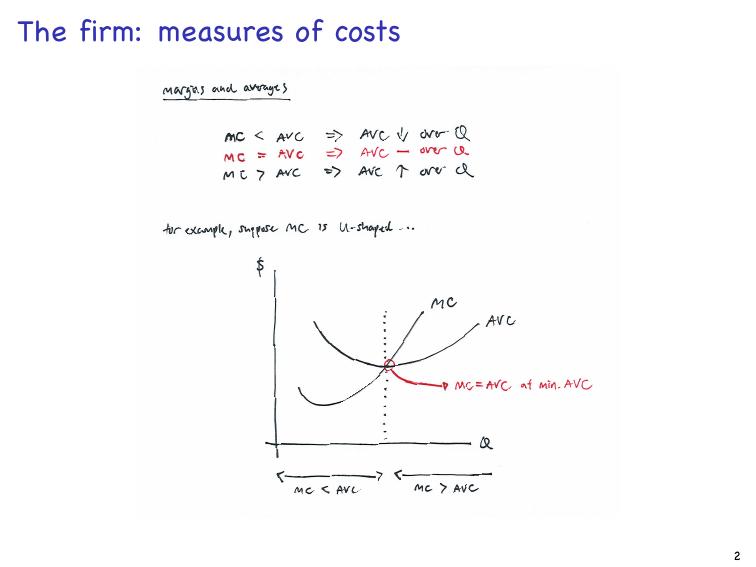 The firm: measures of costs
margins and averages
MC < AVC ⇒ AVC ↓ over Q
MC = AVC ⇒ AVC — over Q
MC > AVC ⇒ AVC ↑ over Q
for example, suppose MC is U-shaped ...
$
MC
AVC
MC = AVC at min. AVC
Q
MC < AVC
MC > AVC
2